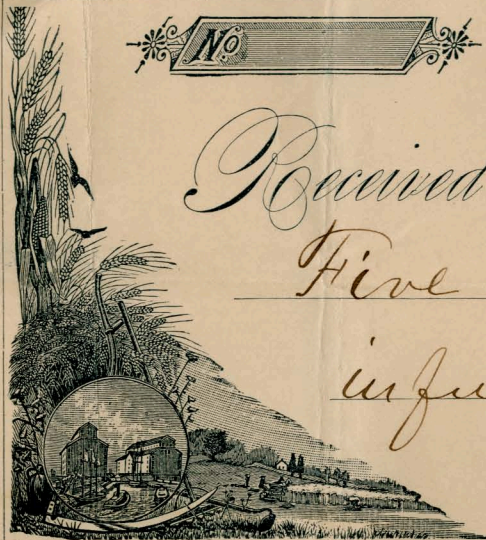 No
Received
Five
in fu